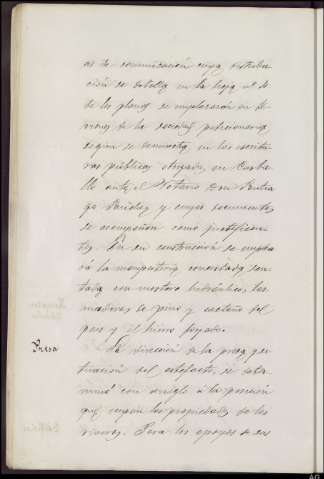 as de comunicación cuya distribu-
ción se detalla en la hoja nº 10
de los planos se emplazarán en te-
rrenos de la sociedad peticionaria,
según se demuestra en las escritu-
ras públicas otorgadas, en Carba-
llo ante el Notario Don Santia-
go Sánchez y cuyos documentos
se acompañan como justifican-
tes. En su construcción se emplea-
rá la mampostería concertada, sen-
tada con mortero hidráulico, las
maderas de pino y castaño del
país y el hierro forjado.
Presa
La dirección de la presa y si-
tuación del artefacto, se deter-
minó con arreglo á la posición
que ocupan las propiedades de los
vianos. Para los apoyos de sus
AG